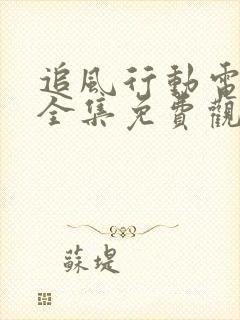 追風行動電
全集免費觀
蘇堤